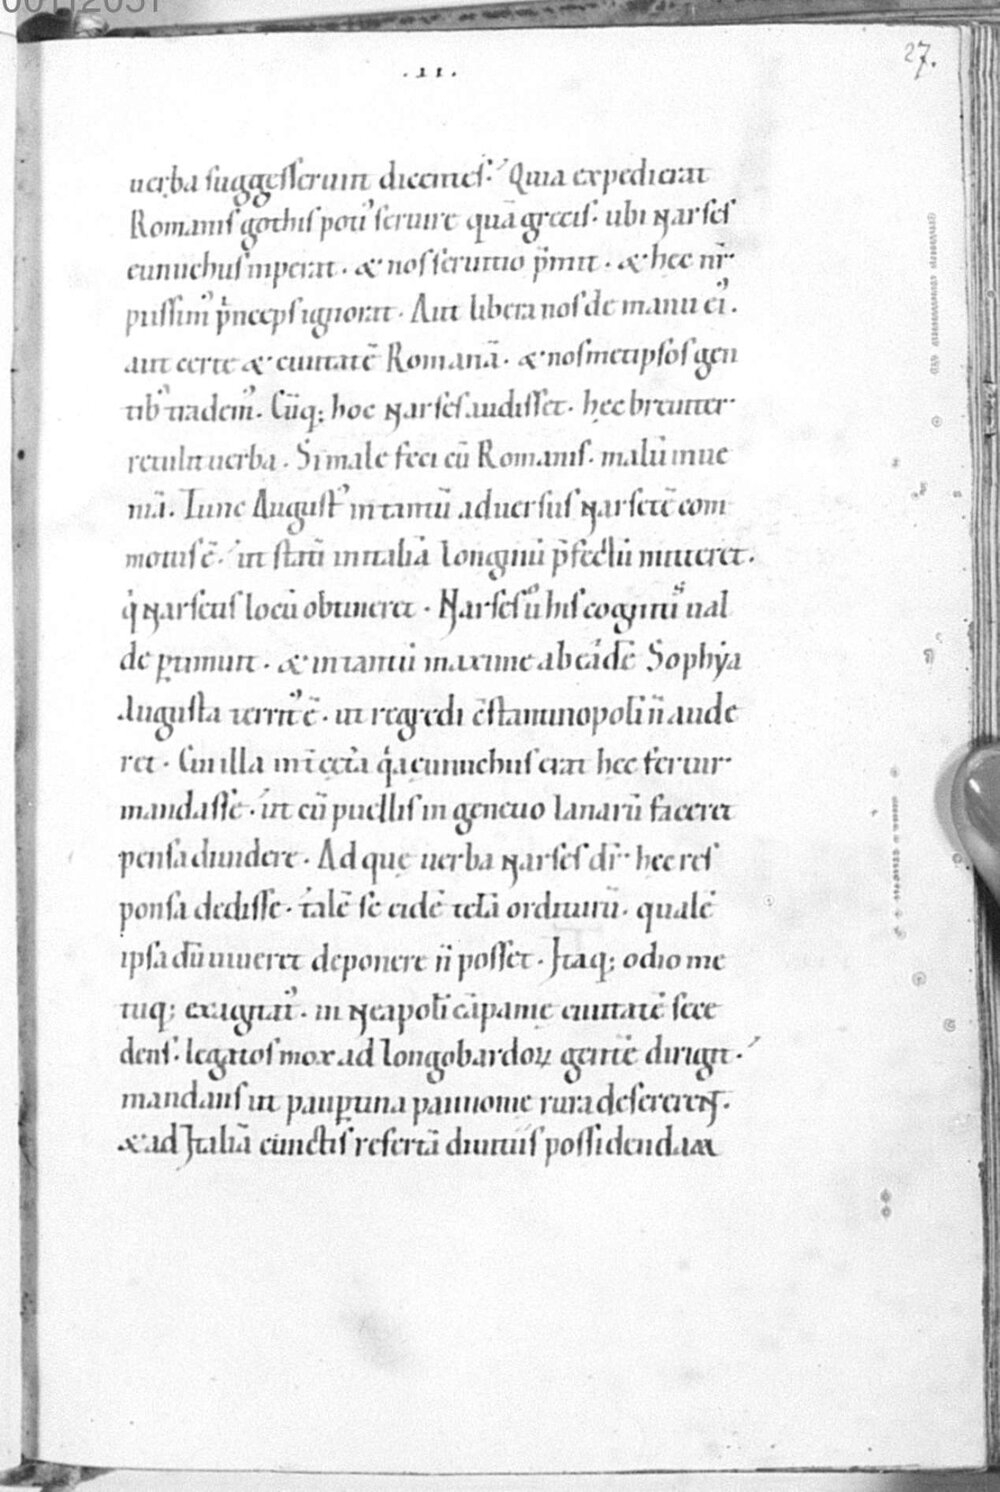 00112051
27.
.II.
uerba suggesserunt dicentes. Quia expedierat
Romanis gothis poti᾽ seruire quā grecis. ubi Narses
eunuchus imperat. & nos seruitio p̄mit. & hec nr̄
piissim᾽ p̄nceps ignorat. Aut libera nos de manu ei᾽.
aut certe & ciuitatē Romanā. & nosmetipsos gen
tib᾽ trademꝰ. Cūq; hoc Narses audisset. hęc breuiter
retulit uerba. Si male feci cū Romanis. malū inue
niā. Tunc August᾽ in tantū aduersus Narsetē com
motus ē. ut statī in italiā Longinū p̄fectū mitteret.
q̇ Narsetis locū obtineret. Narses ū his cognitis ual
de ptimuit. & in tantū maxime ab eadē Sophya
Augusta territ᾽ ē. ut regredi c̄stantinopolī n̄ aude
ret. Cui illa int̄ cętā q̇a eunuchus erat hęc fertur
mandasse. ut eū puellis in geneuo lanarū faceret
pensa diuidere. Ad quę uerba Narses dr̄ hec res
ponsa dedisse. talē se eidē telā orditurū. qualē
ipsa dū uiueret deponere n̄ posset. Itaq; odio me
tuq; exagitat᾽. in Neapolī cāpanię ciuitatē sece
dens. legatos mox ad longobardoꝝ gentē dirigit.
mandans ut paupertina pannonię rura desererent.
& ad Italiā cunctis refertā diuitiis possidendam